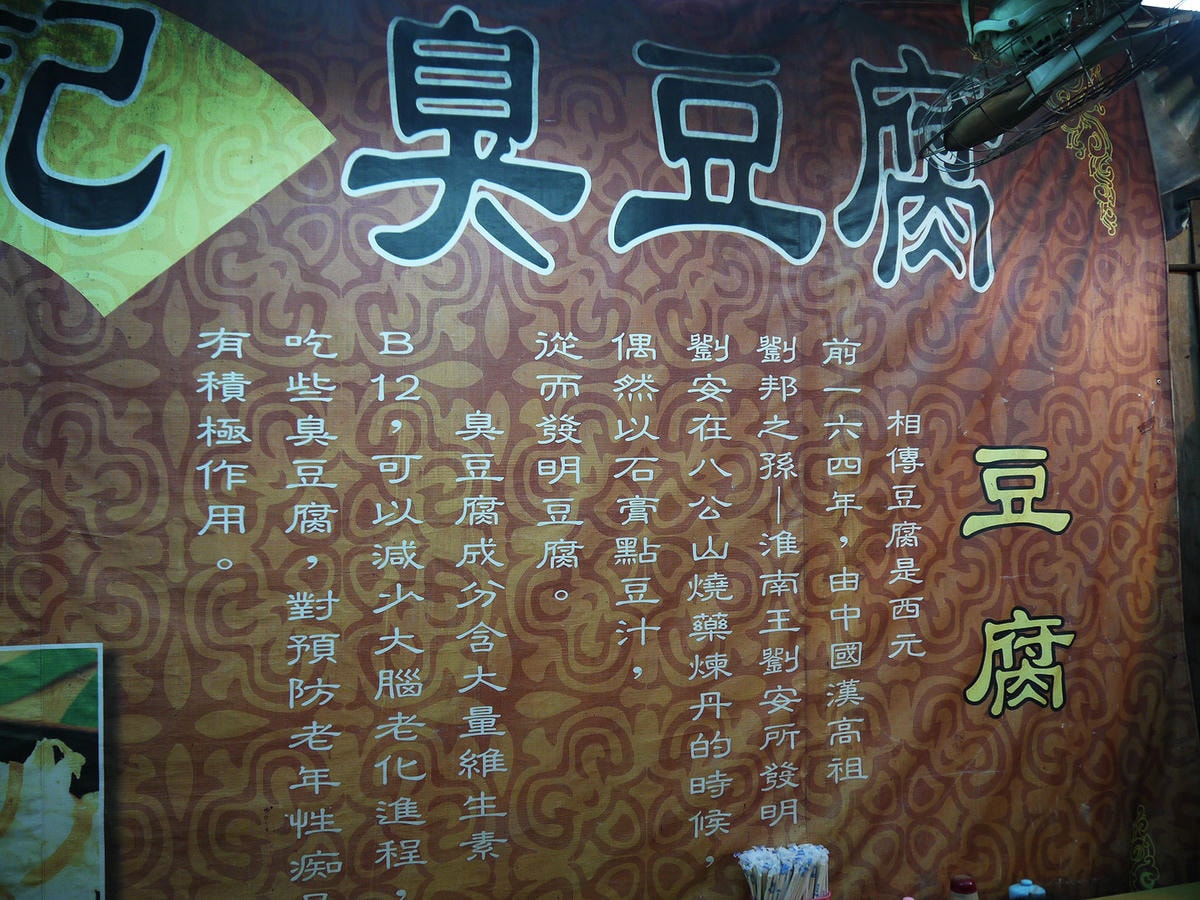 記臭豆腐
豆腐
相傳豆腐是西元
前一六四年，由中國漢高祖
劉邦之孫—淮南王劉安所發明
劉安在八公山燒藥煉丹的時候，
偶然以石膏點豆汁，
從而發明豆腐。
臭豆腐成分含大量維生素
B12，可以減少大腦老化進程，
吃些臭豆腐，對預防老年性痴
有積極作用。